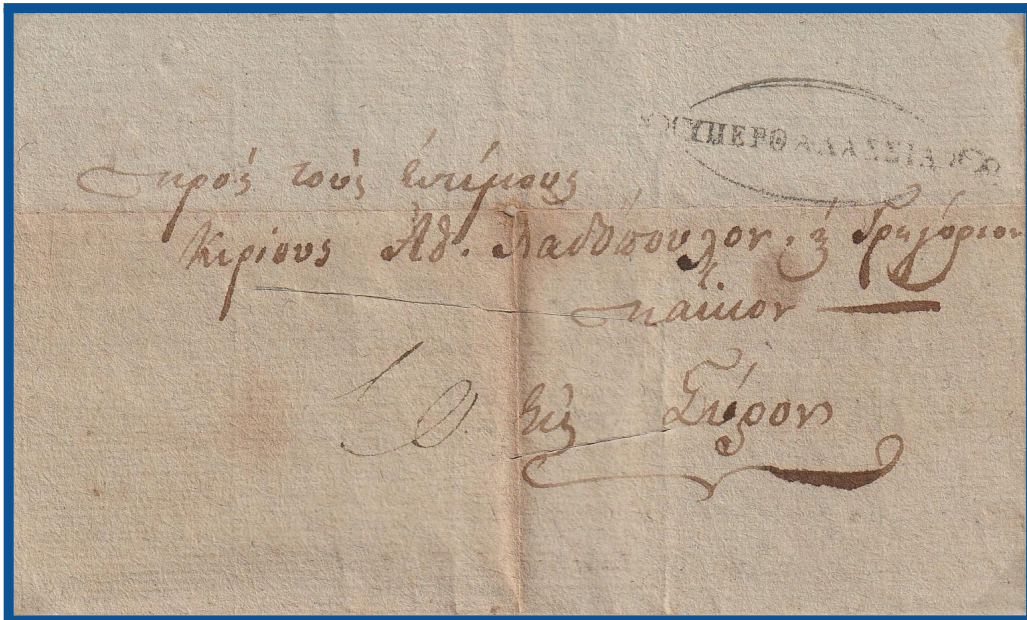 ΥΠΕΡΘΑΛΑΣΣΙΑ
πρός τοὺς ἐντίμους
Κυρίους Ἀθ. Λαδόπουλον. & Γρηγόριον
Παΐκον
Εἰς Σύρον